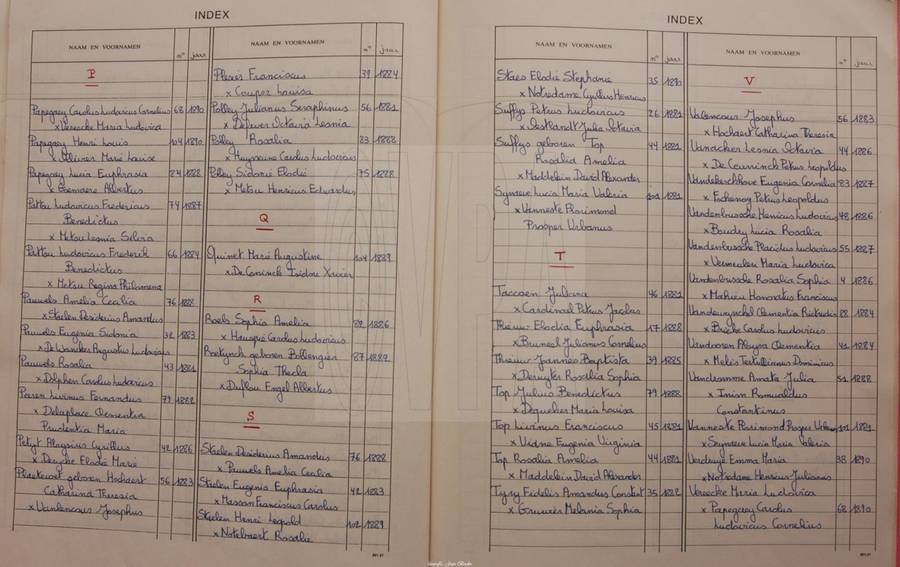 INDEX
NAAM EN VOORNAMEN n° jaar
P
Papegaey Carolus Ludovicus Cornelius 68 1890
x Vereecke Maria Ludovica
Papegaey Henri Louis 104 1890
x Marie Louise
Papegaey Lucia Euphrasia 24 1888
x Albertus
Pattou Ludovicus Fredericus 74 1887
Benedictus
x Metsu Leonia Silvia
Pattou Ludovicus Frederik 66 1884
Benedictus
x Metsu Regina Philomena
Pauwels Amelia Cecilia 76 1888
x Staelen Desiderius Amandus
Pauwels Eugenia Sidonia 32 1883
x Augustus Ludovicus
Pauwels Rosalia 43 1881
x Dolphen Carolus Ludovicus
Livinus Fernandus 79 1888
x Delaplace Clementia
Prudentia Maria
Petyt Aloysius Cyrillus 42 1886
x Deryche Elodie Marie
geboren Hochaert 56 1883
Catharina Theresia
x Vanlencous Josephus
NAAM EN VOORNAMEN n° jaar
Franciscus 39 1884
x Couper Louisa
Polley Julianus Seraphinus 56 1881
x Octavia Leonia
Polley Rosalia 23 1888
x Huyseune Carolus Ludovicus
Polley Sidonie Elodie 75 1888
x Metsu Henricus Eduardus
Q
Quinet Marie Augustine 104 1889
x De Coninck Isidoor Xavier
R
Roels Sophia Amelia 1886
x Carolus Ludovicus
geboren Bollengier 87 1882
Sophia Thecla
x Duflou Engel Albertus
S
Staelen Desiderius Amandus 76 1888
x Pauwels Amelia Cecilia
Staelen Eugenia Euphrasia 42 1883
x Massan Franciscus Carolus
Staelen Henri Leopold 102 1889
x Notebaert Rosalie
INDEX
NAAM EN VOORNAMEN n° jaar
Staes Elodie Stephanie 35 1890
x Notredame Cyrillus Henricus
Suffys Petrus Ludovicus 26 1881
x Julia Octavia
Suffys geboren Top 44 1881
Rosalia Amelia
x Maddelein David Alexander
Synaeve Lucia Maria Valeria 101 1881
x Vanneste
Prosper Urbanus
T
Taccoen Juliana 46 1881
x Cardinael Petrus
Elodia Euphrasia 17 1888
x Bruneel Julianus Cornelius
Joannes Baptista 39 1885
x Deruyter Rosalia Sophia
Top Julius Benedictus 79 1888
x Dequeker Maria Louisa
Top Livinus Franciscus 45 1881
x Eugenia Virginia
Top Rosalia Amelia 44 1881
x Maddelein David Alexander
Fidelis Amandus Constant 35 1882
x Melania Sophia
NAAM EN VOORNAMEN n° jaar
V
Valencour Josephus 56 1883
x Hochaert Catharina Theresia
Vanacker Leonia Octavia 44 1886
x De Ceuninck Petrus Leopoldus
Vandekerckhove Eugenia Cornelia 83 1887
x Petrus Leopoldus
Vandenbussche Henricus Ludovicus 48 1886
x Boudry Lucia Rosalia
Vandenbussche Placidus Ludovicus 55 1887
x Vermeulen Maria Ludovica
Vandenbussche Rosalia Sophia 4 1886
x Mahieu Honoratus Franciscus
Clementia 28 1884
x Carolus Ludovicus
Vandooren Aloysa Clementia 41 1884
x Melis Tertullianus Dominicus
Vandromme Amata Julia 51 1888
x Romualdus
Constantinus
Vanneste Prosper 101 1881
x Synaeve Lucia Maria Valeria
Emma Maria 38 1890
x Notredame Henricus Julianus
Vereecke Maria Ludovica
x Papegaey Carolus 68 1890
Ludovicus Cornelius